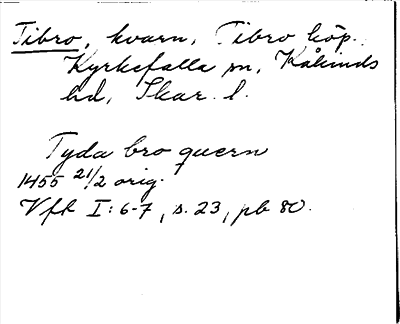 Tibro, kvarn, Tibro köp.
Kyrkefalla sn, Kåkinds
hd, Skar. l.
Tyda bro quern
1455 21/2 orig.
Vfk I:6-7, s. 23, pb 80.